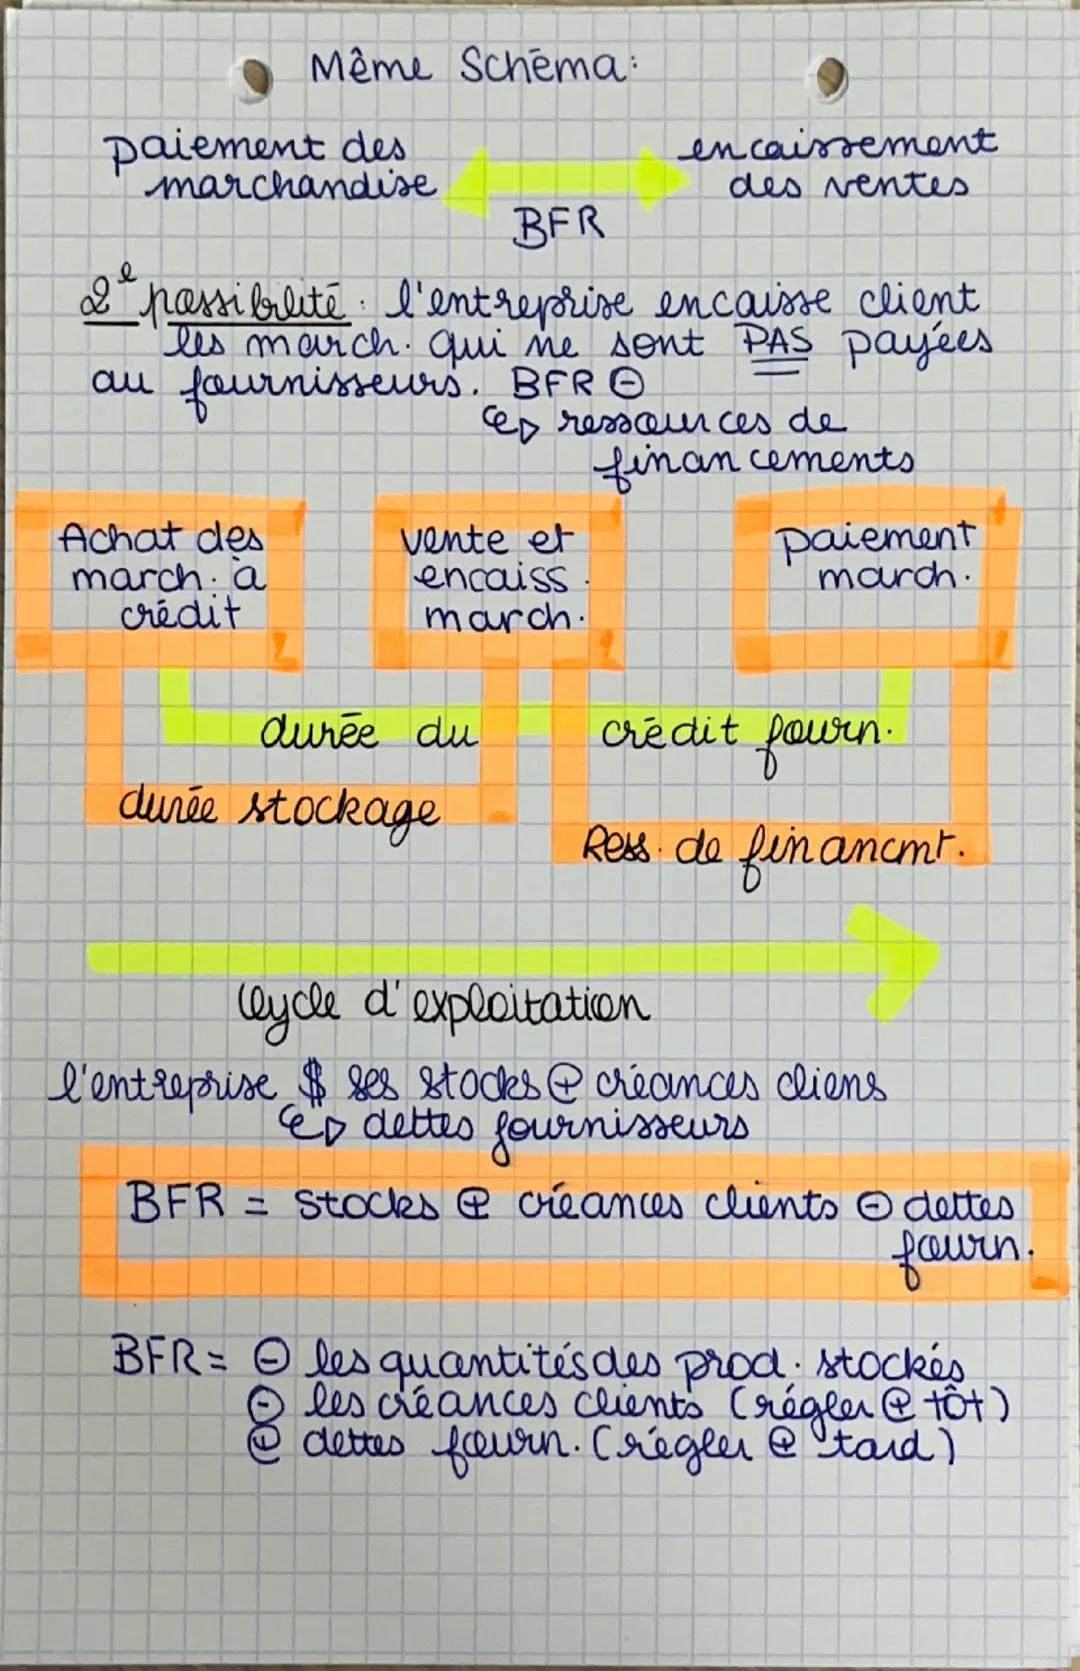 Même Schéma:
paiement des
marchandise
encaissement
des ventes
BFR
2e possibilité : l'entreprise encaisse client
les march. qui ne sont PAS payées
au fournisseurs. BFR ⊖
↳ ressources de
financements
Achat des
march. à
crédit
vente et
encaiss.
march.
paiement
march.
durée du crédit fourn.
durée stockage
Ress. de financmt.
Cycle d'exploitation
l'entreprise $ ses stocks ⊕ créances cliens
↳ dettes fournisseurs
BFR = stocks ⊕ créances clients ⊖ dettes
fourn.
BFR = ⊖ les quantités des prod. stockés
⊖ les créances clients (régler ⊕ tôt)
⊕ dettes fourn. (régler ⊕ tard)